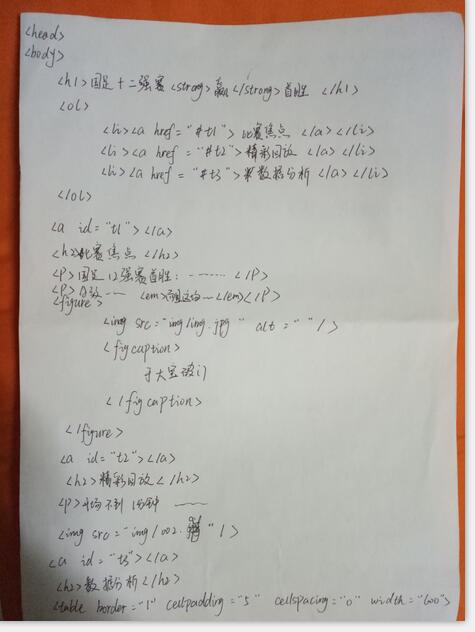 <head>
<body>
<h1>国足十二强赛<strong>赢</strong>首胜 </h1>
<ol>
<li><a href="#t1">比赛焦点 </a></li>
<li><a href="#t2">精彩回放 </a></li>
<li><a href="#t3">数据分析 </a></li>
</ol>
<a id="t1"></a>
<h2>比赛焦点</h2>
<P>国足12强赛首胜: ------- </P>
<P> ---- <em> --</em></P>
<figure>
<img src="img/img.jpg" alt=" "/>
<figcaption>
于大宝破门
</figcaption>
</figure>
<a id="t2"></a>
<h2>精彩回放</h2>
<P>开场不到1分钟 ------
<img src="img/002. "/>
<a id="t3"></a>
<h2>数据分析</h2>
<table border="1" cellpadding="5" cellspacing="0" width="600">